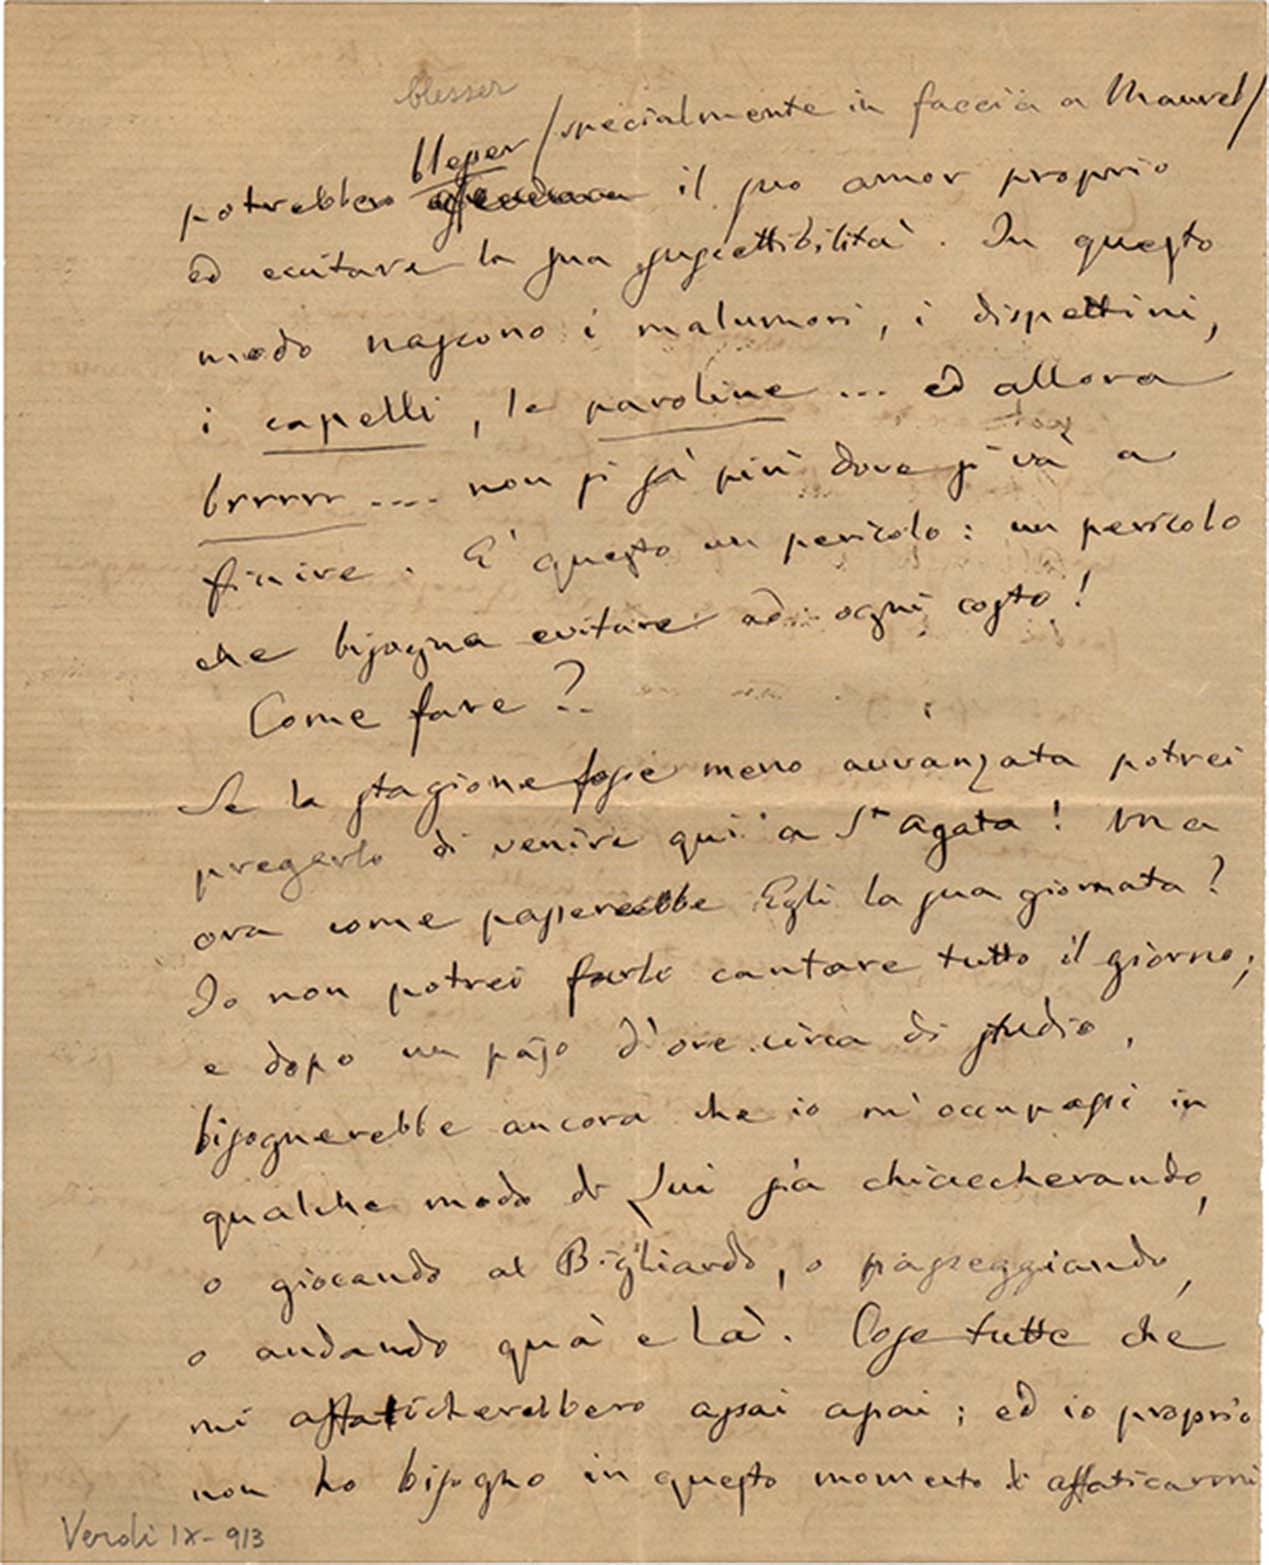 blesser
blesser /specialmente in faccia a Maurel/
potrebbero il suo amor proprio
ed eccitare la sua suscettibilità. In questo
modo nascono i malumori, i dispettini,
i capelli, le paroline ... ed allora
brrrrr .... non si sà più dove si và a
finire. E' questo un pericolo: un pericolo
che bisogna evitare ad ogni costo!
Come fare?..
Se la stagione fosse meno avvanzata potrei
pregarlo di venire qui a St Agata! Ma
ora come passerebbe Egli la sua giornata?
Io non potrei farlo cantare tutto il giorno;
e dopo un pajo d'ore circa di studio,
bisognerebbe ancora che io m'occupassi in
qualche modo di Lui sia chiaccherando,
o giocando al Bigliardo, o passeggiando,
o andando quà e là. Cose tutte che
mi affaticherebbero assai assai; ed io proprio
non ho bisogno in questo momento di affaticarmi
Verdi IX-913